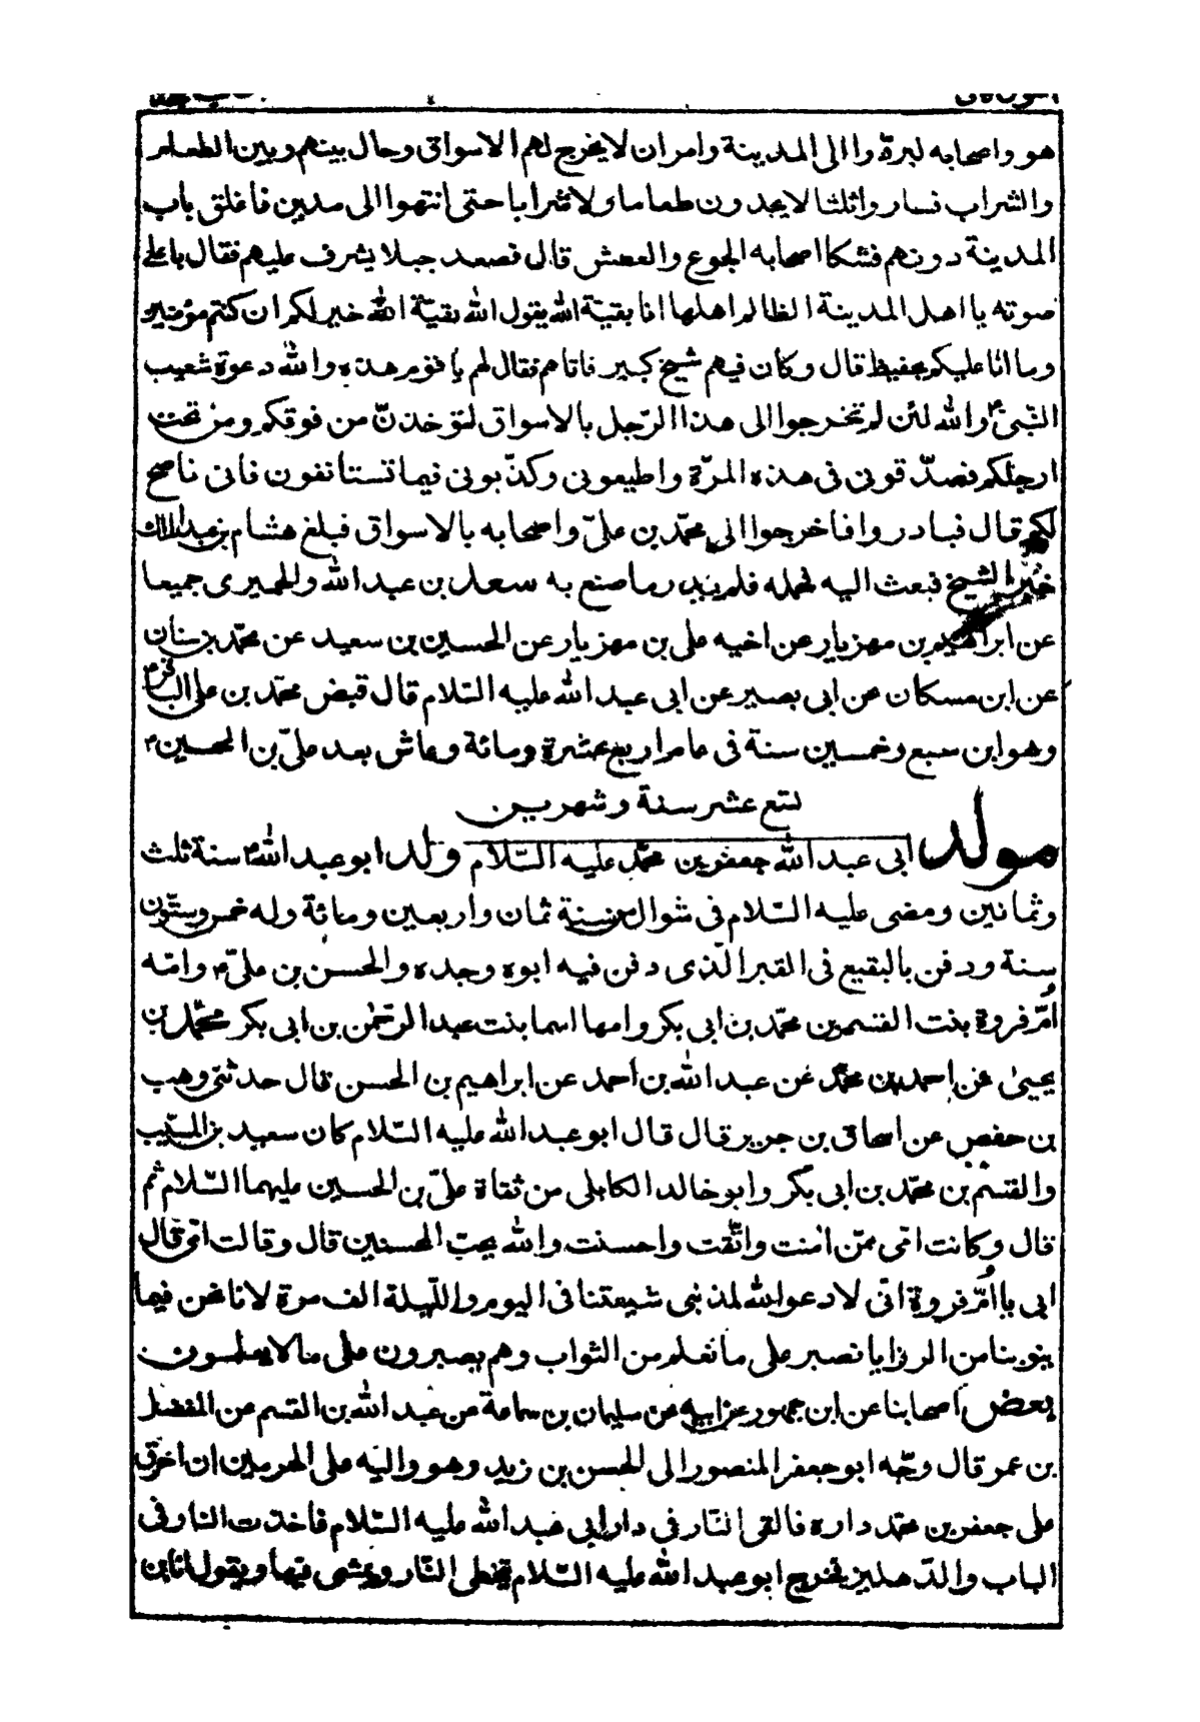 هو واصحابه ليردوا الى المدينة وامر ان لا يخرج لهم الاسواق وحال بينهم وبين الطعام
والشراب فساروا ثلثا لا يجدون طعاما ولا شرابا حتى انتهوا الى مدين فاغلق باب
المدينة دونهم فشكا اصحابه الجوع والعطش قال فصعد جبلا يشرف عليهم فقال باعلى
صوته يا اهل المدينة الظالم اهلها انا بقية الله يقول الله بقيّة الله خير لكم ان كنتم مؤمنين
وما انا عليكم بحفيظ قال وكان فيهم شيخ كبير فاتاهم فقال لهم يا قوم هذه والله دعوة شعيب
النّبى ۴ والله لئن لم تخرجوا الى هذا الرّجل بالاسواق لتؤخذنّ من فوقكم ومن تحت
ارجلكم فصدّقونى فى هذه المرّة واطيعونى وكذّبونى فيما تستانفون فانى ناصح
لكم قال فبادروا فاخرجوا الى محمّد بن علىّ واصحابه بالاسواق فبلغ هشام بن عبد الملك
خبر الشيخ فبعث اليه فحمله فلم يدر ما صنع به سعد بن عبد الله والحميرى جميعا
عن ابراهيم بن مهزيار عن اخيه على بن مهزيار عن الحسين بن سعيد عن محمّد بن سنان
عن ابن مسكان عن ابى بصير عن ابى عبد الله عليه السّلام قال قبض محمّد بن على الباقر ۴
وهو ابن سبع وخمسين سنة فى عام اربع عشرة ومائة وعاش بعد علىّ بن الحسين ۴
تسع عشر سنة وشهرين
مولد ابى عبد الله جعفر بن محمّد عليه السّلام ولد ابو عبد الله ۴ سنة ثلث
وثمانين ومضى عليه السّلام فى شوال من سنة ثمان واربعين ومائة وله خمس وستّون
سنة ودفن بالبقيع فى القبر الّذى دفن فيه ابوه وجده والحسن بن علىّ ۴ وامّه
اُمّ فروة بنت القسم بن محمّد بن ابى بكر وامها اسما بنت عبد الرّحمٰن بن ابى بكر محمّد بن
يحيىٰ عن احمد بن محمّد عن عبد الله بن احمد عن ابراهيم بن الحسن قال حدثنى وهب
بن حفص عن اسحاق بن جرير قال قال ابو عبد الله عليه السّلام كان سعيد بن المسيّب
والقسم بن محمّد بن ابى بكر وابو خالد الكابلى من ثقاة علىّ بن الحسين عليهما السّلام ثم
قال وكانت امّى ممّن اٰمنت واتّقت واحسنت والله يحبّ المحسنين قال وقالت امّى قال
ابى يا اُمّ فروة انّى لادعو الله لمذنبى شيعتنا فى اليوم واللّيلة الف مرة لانا نحن فيما
ينوبنا من الرزايا نصبر على ما نعلم من الثواب وهم يصبرون على ما لا يعلمون
بعض اصحابنا عن ابن جمهور عن ابيه عن سليمان بن سماعة عن عبد الله بن القسم عن المفضل
بن عمر قال وجّه ابو جعفر المنصور الى الحسن بن زيد وهو واليه على الحرمين ان احرق
على جعفر بن محمّد داره فالقى النّار فى دار ابى عبد الله عليه السّلام فاخذت النار فى
الباب والدّهليز فخرج ابو عبد الله عليه السّلام يتخطى النّار ويمشى فيها ويقول انا ابن